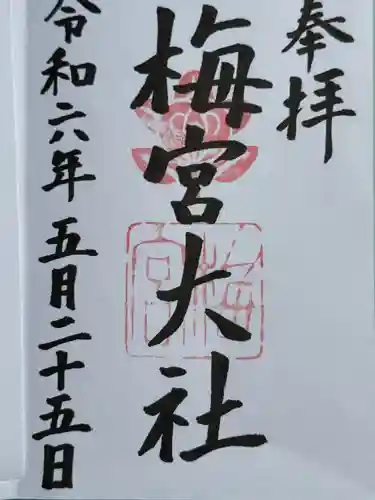 奉拝
梅宮大社
梅宮
令和六年五月二十五日